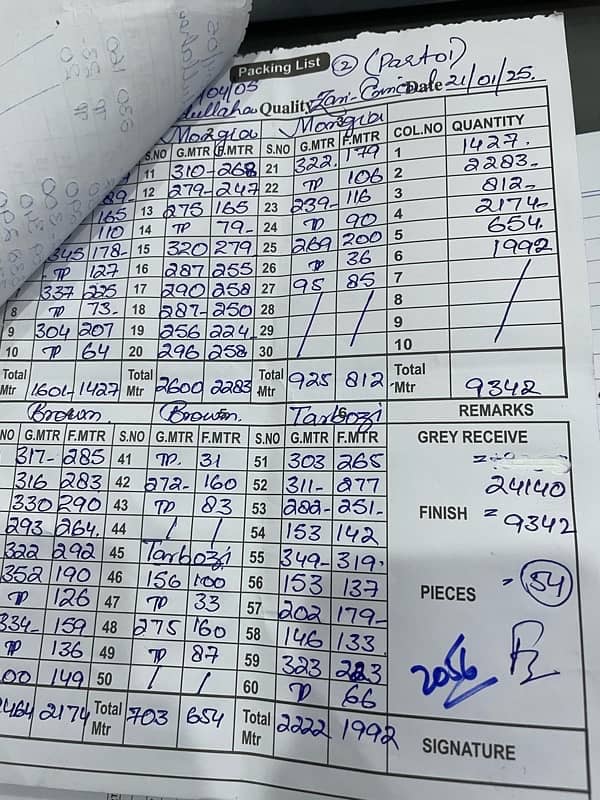 Packing List 2 (Part 01)
/04/05
dullaha Quality Date 21/01/25.
Mongia Mongia COL.NO QUANTITY
S.NO G.MTR F.MTR S.NO G.MTR F.MTR
11 310- 268 21 322 179 1 1427.
89- 12 279- 247 22 TP 106 2 2283-
165 13 275 165 23 239- 116 3 812-
110 14 TP 79- 24 TP 90 4 2174-
345 178- 15 320 279 25 269 200 5 654.
TP 127 16 287 255 26 TP 36 6 1992
337 225 17 290 258 27 95 85 7
8 TP 73- 18 287- 250 28 / / 8
9 304 207 19 256 224- 29 9
10 TP 64 20 296 258 30 10
Total Mtr 1601- 1427 Total Mtr 2600 2283 Total Mtr 925 812 Total Mtr 9342
Brown. Brown. Tarbozi REMARKS
NO G.MTR F.MTR S.NO G.MTR F.MTR S.NO G.MTR F.MTR GREY RECEIVE
317- 285 41 TP. 31 51 303 265 =
316 283 42 272- 160 52 311- 277 24140
330 290 43 TP 83 53 282- 251- FINISH = 9342
293 264. 44 / / 54 153 142
322 292 45 Tarbozi 55 349- 319.
352 190 46 156 100 56 153 137 PIECES = 54
TP 126 47 TP 33 57 202 179-
334- 159 48 275 160 58 146 133
TP 136 49 TP 87 59 323 283 2056
00 149 50 / / 60 TP 66
2464 2174 Total Mtr 703 654 Total Mtr 2222 1992 SIGNATURE